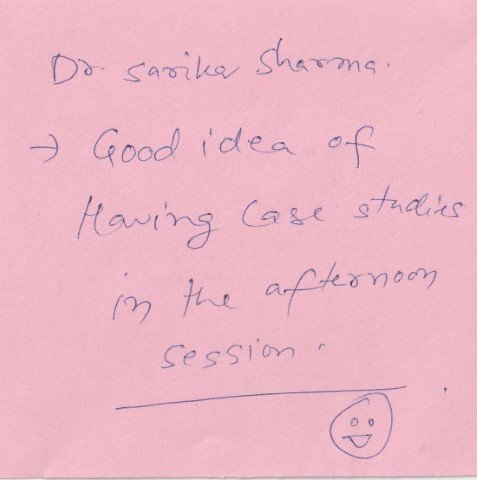 Dr Sarika Sharma.
→ Good idea of
Having Case studies
in the afternoon
session.